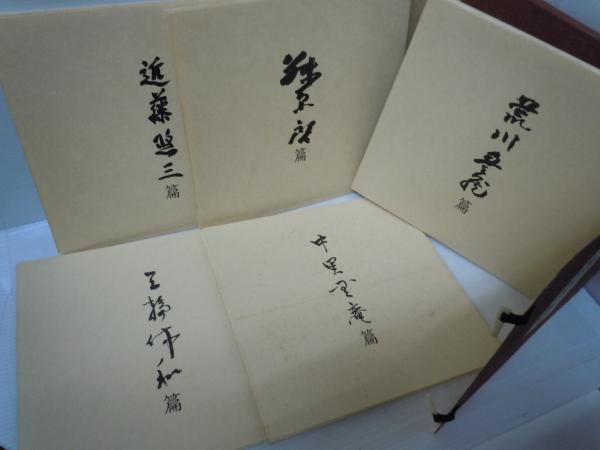 近藤悠三篇
藤原啓篇
荒川豊蔵篇
三輪休和篇
中里無庵篇